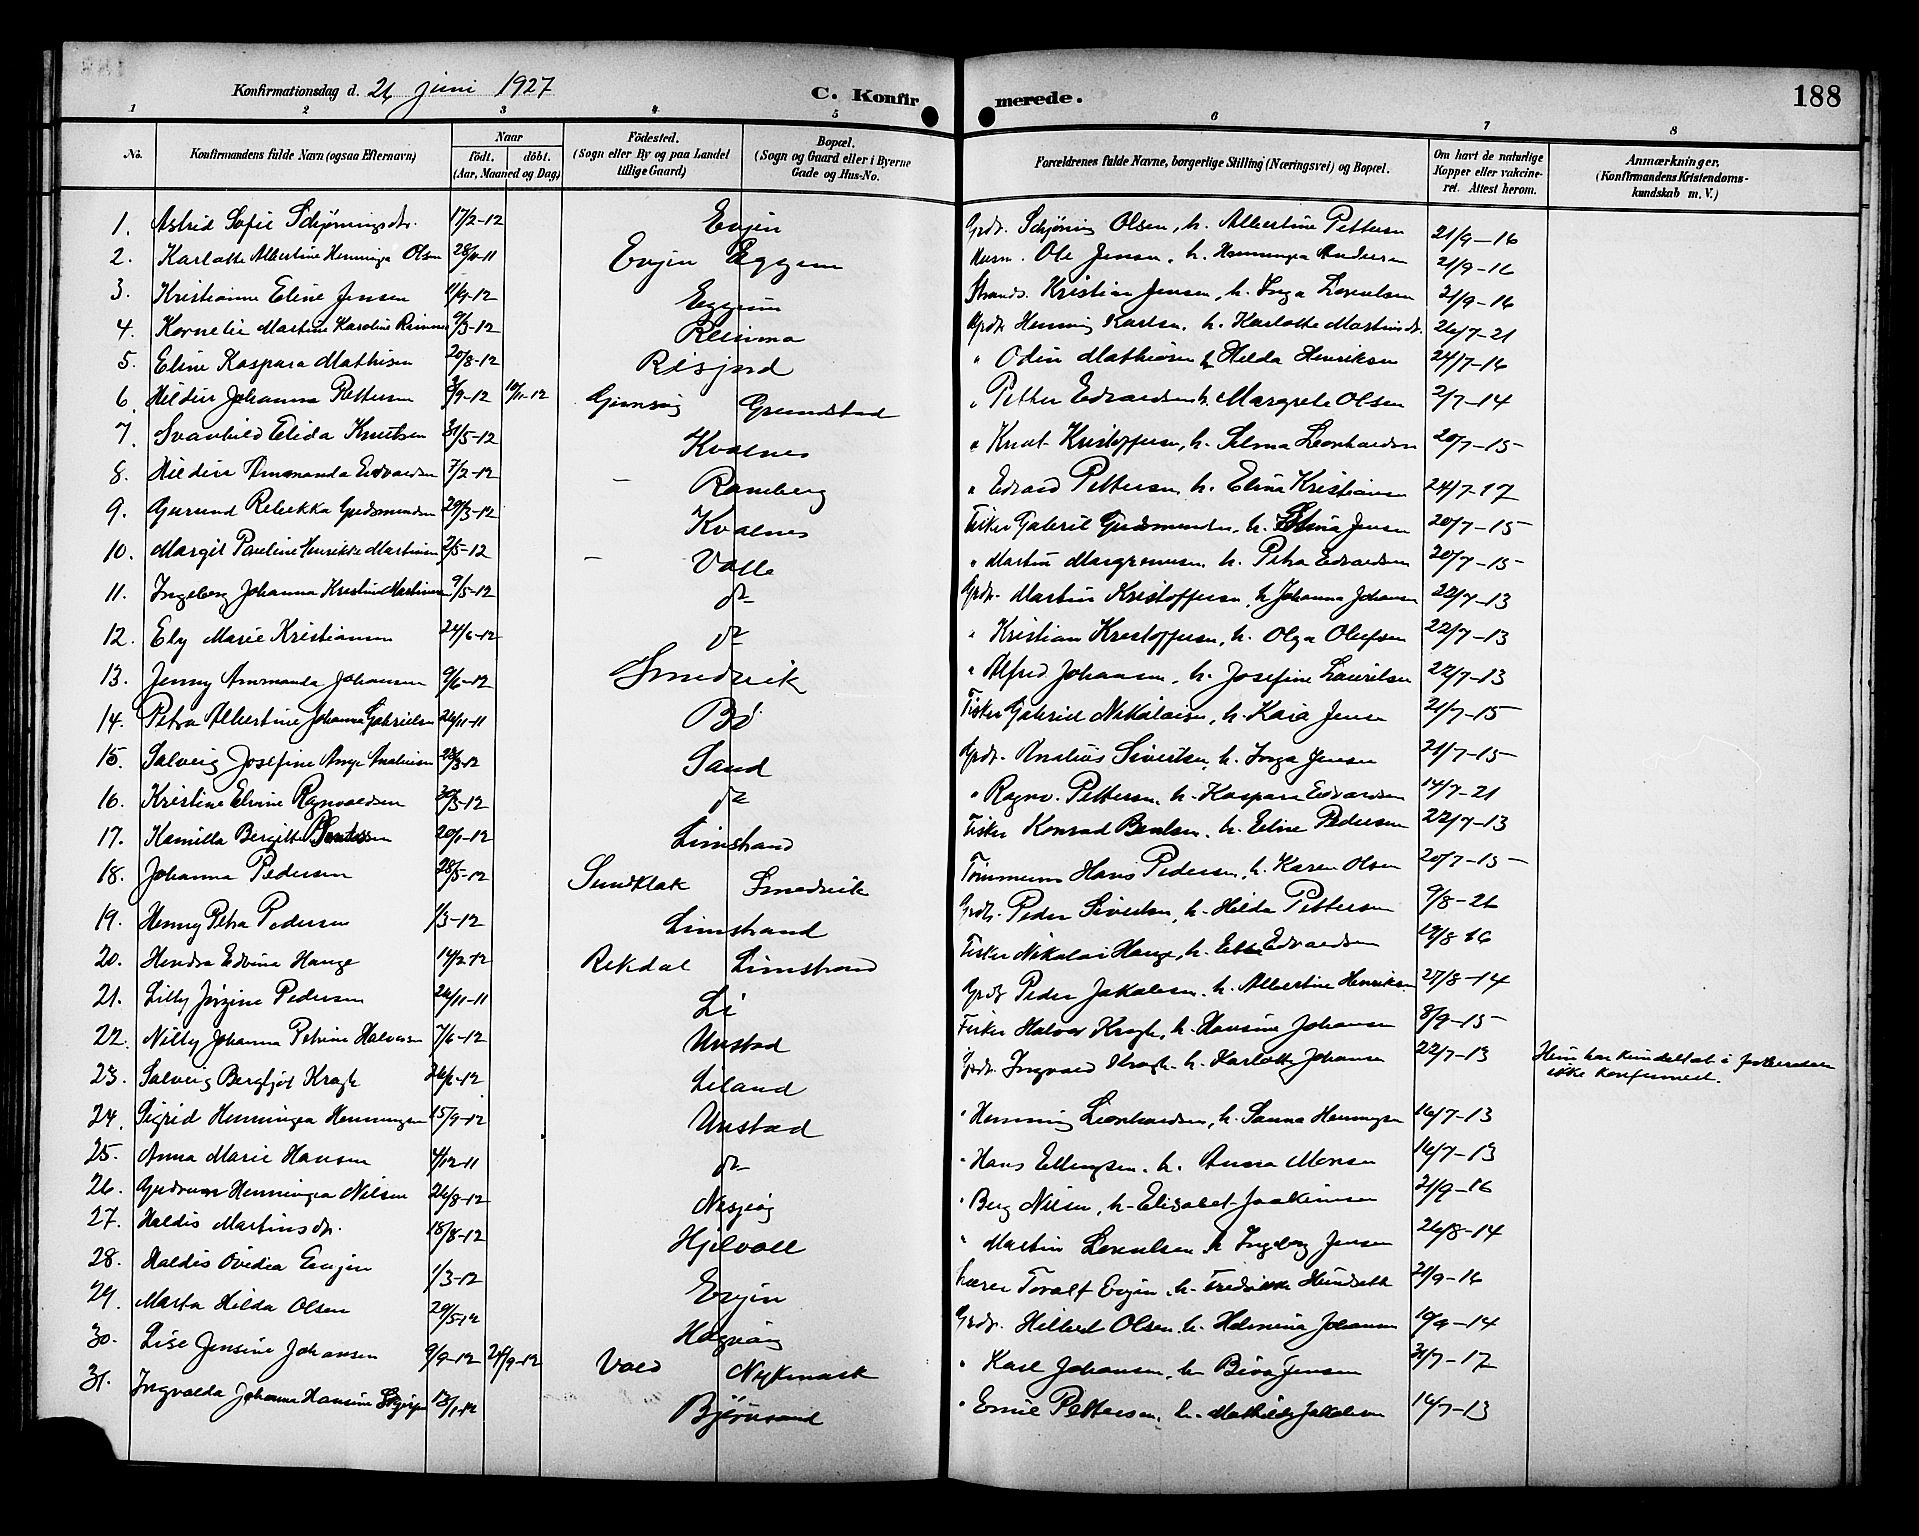 Konfirmationsdag d. 26 juni 1927
C. Konfirmerede.
188
1 2 3 4 5 6 7 8
No. Konfirmandens fulde Navn (ogsaa Efternavn) Naar födt. döbt. (Aar, Maaned og Dag) Födested. (Sogn eller By og paa Landet tillige Gaard) Bopæl. (Sogn og Gaard eller i Byerne Gade og Hus-No. Forældrenes fulde Navne, borgerlige Stilling (Næringsvei) og Bopæl. Om havt de naturlige Kopper eller vakcineret. Attest herom. Anmærkninger. (Konfirmandens Kristendomskundskab m. V.)
1. Astrid Sofie Schjøningsdr. 17/2-12 Evjen Grdr. Schjøning Olsen, h. Albertine Pettersen 21/9-16
2. Karlotte Albertine Henninga Olsen 28/11-11 Evjen Eggum Husm. Ole Jensen, h. Henninga Andersen 21/9-16
3. Kristianna Eline Jensen 1/9-12 Eggum Strands. Kristian Jensen, h. Inga Lorentsen 21/9-16
4. Kornelie Martine Karoline Rimma 9/3-12 Relima Grdr. Henning Karlsen, h. Karlotte Martinsdr. 26/7-21
5. Eline Kaspara Mathisen 20/8-12 Risjord " Odin Mathisen h Hilda Henriksen 24/7-16
6. Hildur Johanna Pettersen 3/9-12 10/11-12 Gimsøy Grundstad " Petter Edvardsen h. Margrete Olsen 2/7-14
7. Svanhild Elida Knutsen 31/5-12 Kvalnes " Knut Kristoffersen, h. Selma Leonhardsen 20/7-15
8. Hildur Ammanda Edvardsen 7/2-12 - Ramberg " Edvard Pettersen h. Elina Kristiansen 24/7-17
9. Gurund Rebekka Gudsmundsen 29/3-12 Kvalnes Fisker Gabriel Gudsmundsen, h. Elina Jensen 20/7-15
10. Margit Pauline Henrikke Martinsen 2/5-12 - Valle " Martin Margremsen h. Petra Edvardsen 20/7-15
11. Ingeborg Johanna Kristine Martinsen 9/5-12 do Grdr. Martin Kristoffersen, h Johanna Johansen 22/7-13
12. Ely Marie Kristiansen 24/6-12 do " Kristian Kristoffersen, h. Olga Olufsen 22/7-13
13. Jenny Ammanda Johansen 9/6-12 Smedvik " Alfred Johansen, h. Josefine Lauritsen 22/7-13
14. Petra Albertine Johanna Gabrielsen 26/11-11 Bø Fisker Gabriel Nikolaisen, h. Kaia Jensen 21/7-15
15. Salveig Josefine Analiusen 28/3-12 Sand Grdr. Analius Sivertsen, h. Inga Jensen 21/7-15
16. Kristine Elvine Ragnvaldsen 30/3-12 do " Ragnv. Pettersen, h. Kaspara Edvardsen 14/7-21
17. Kamilla Bergitte Bentsen 20/1-12 Limstrand Fisker Konrad Bentsen, h. Eline Pedersen 22/7-13
18. Johanna Pedersen 28/5-12 Sundklak Smedvik Tømmerm Hans Pedersen, h. Karen Olsen 20/7-15
19. Henny Petra Pedersen 1/3-12 Limstrand Grdr. Peder Sivertsen, h. Hilda Pettersen 9/8-26
20. Hendra Edvina Hauge 14/2-12 Rekdal Limstrand Fisker Nikolai Hauge, h. Edvardsen 19/8-16
21. Lilly Jørgine Pedersen 26/11-11 Li Grdr Peder Jakobsen, h. Albertine Henriksen 27/8-14
22. Nilly Johanna Petrine Halvorsen 7/6-12 Unstad Fisker Halvor Kragh, h. Hansine Johansen 8/9-15
23. Salveig Bergljot Kragh 26/2-12 Leland Grdr. Ingvald Kragh, h. Karlotte Johansen 22/7-13 Hun har kun deltat i forberedelsen ikke konfirmert.
24. Sigrid Henninga Henningsen 15/9-12 Unstad " Henning Leonhardsen, h. Sanna Henningsen 16/7-13
25. Anna Marie Hansen 4/12-11 do " Hans Ellingsen, h. Anna Monsen 16/7-13
26. Gudrun Henninga Nilsen 26/8-12 Nesje " Berg Nilsen, h. Elisabet Joakimsen 21/9-16
27. Haldis Martinsdr. 18/8-12 Hjelvoll " Martin Lorentsen h Ingeborg Jensen 26/8-14
28. Haldis Ovedia Evjen 1/3-12 Evjen Lærer Toralf Evjen, h. Fredrikke Hundseth 21/9-16
29. Marta Hilda Olsen 29/5-12 Hagvåg Grdr. Hilbert Olsen, h. Johansen 19/9-14
30. Lise Jensine Johansen 9/9-12 24/9-12 Vold Nykmark " Karl Johansen, h. Jensen 31/7-17
31. Ingvalda Johanna Hansine 12/1-12 Bjørnsand " Emil Pettersen, h. Mathilde Jakobsen 14/7-13